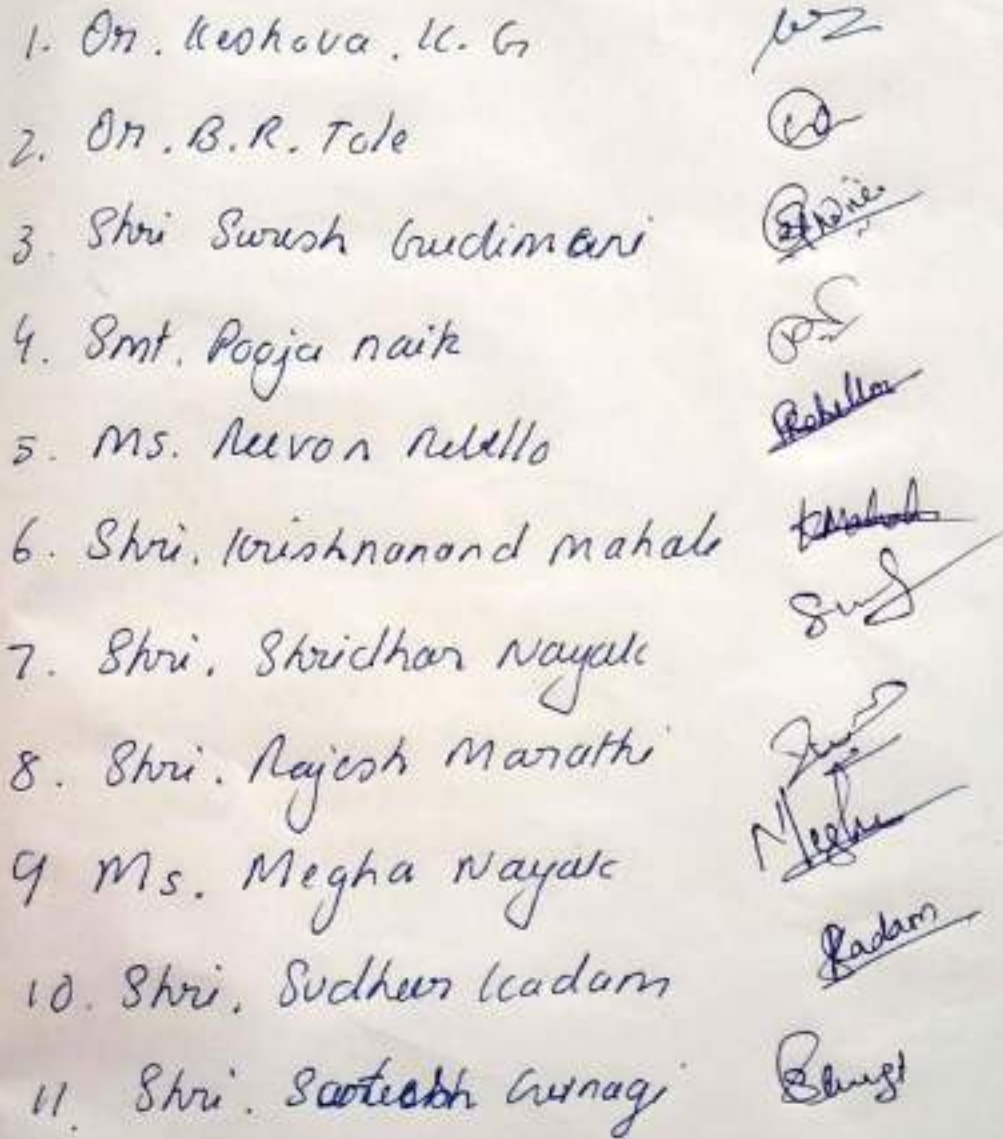 1. Dr. Keshava. K. G
2. Dr. B.R. Tole
3. Shri Suresh Gudimani
4. Smt. Pooja naik
5. Ms. Reevon Rebello Rebello
6. Shri. Krishnanand Mahale KMahale
7. Shri. Shridhar Nayak
8. Shri. Rajesh Marathi
9 Ms. Megha Nayak Megha
10. Shri. Sudheer Kadam Kadam
11. Shri. Santosh Gunagi